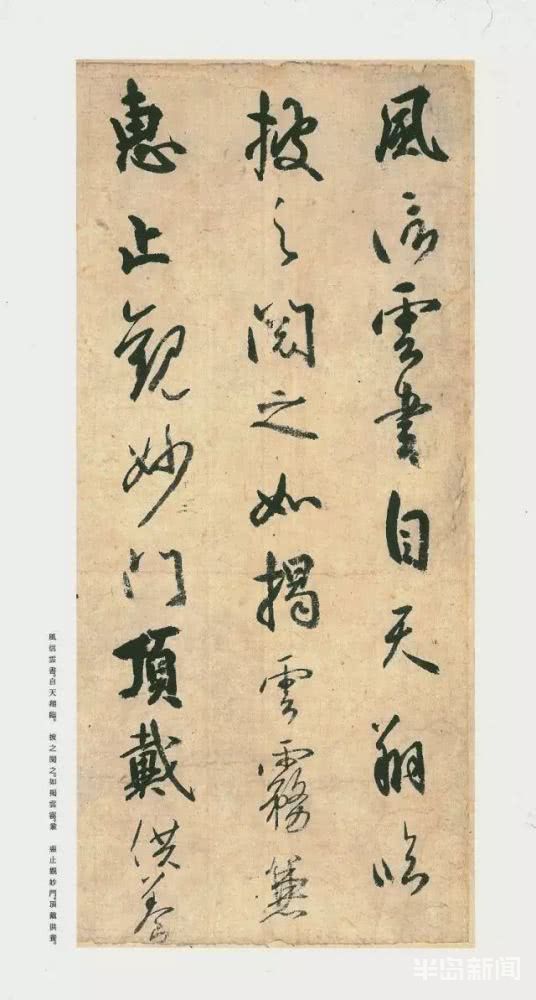 風信雲書自天翔臨
披之閱之如揭雲霧兼
惠止觀妙門頂戴供養
風信雲書自天翔臨。披之閱之。如揭雲霧。兼惠止觀妙門。頂戴供養。
半岛新闻